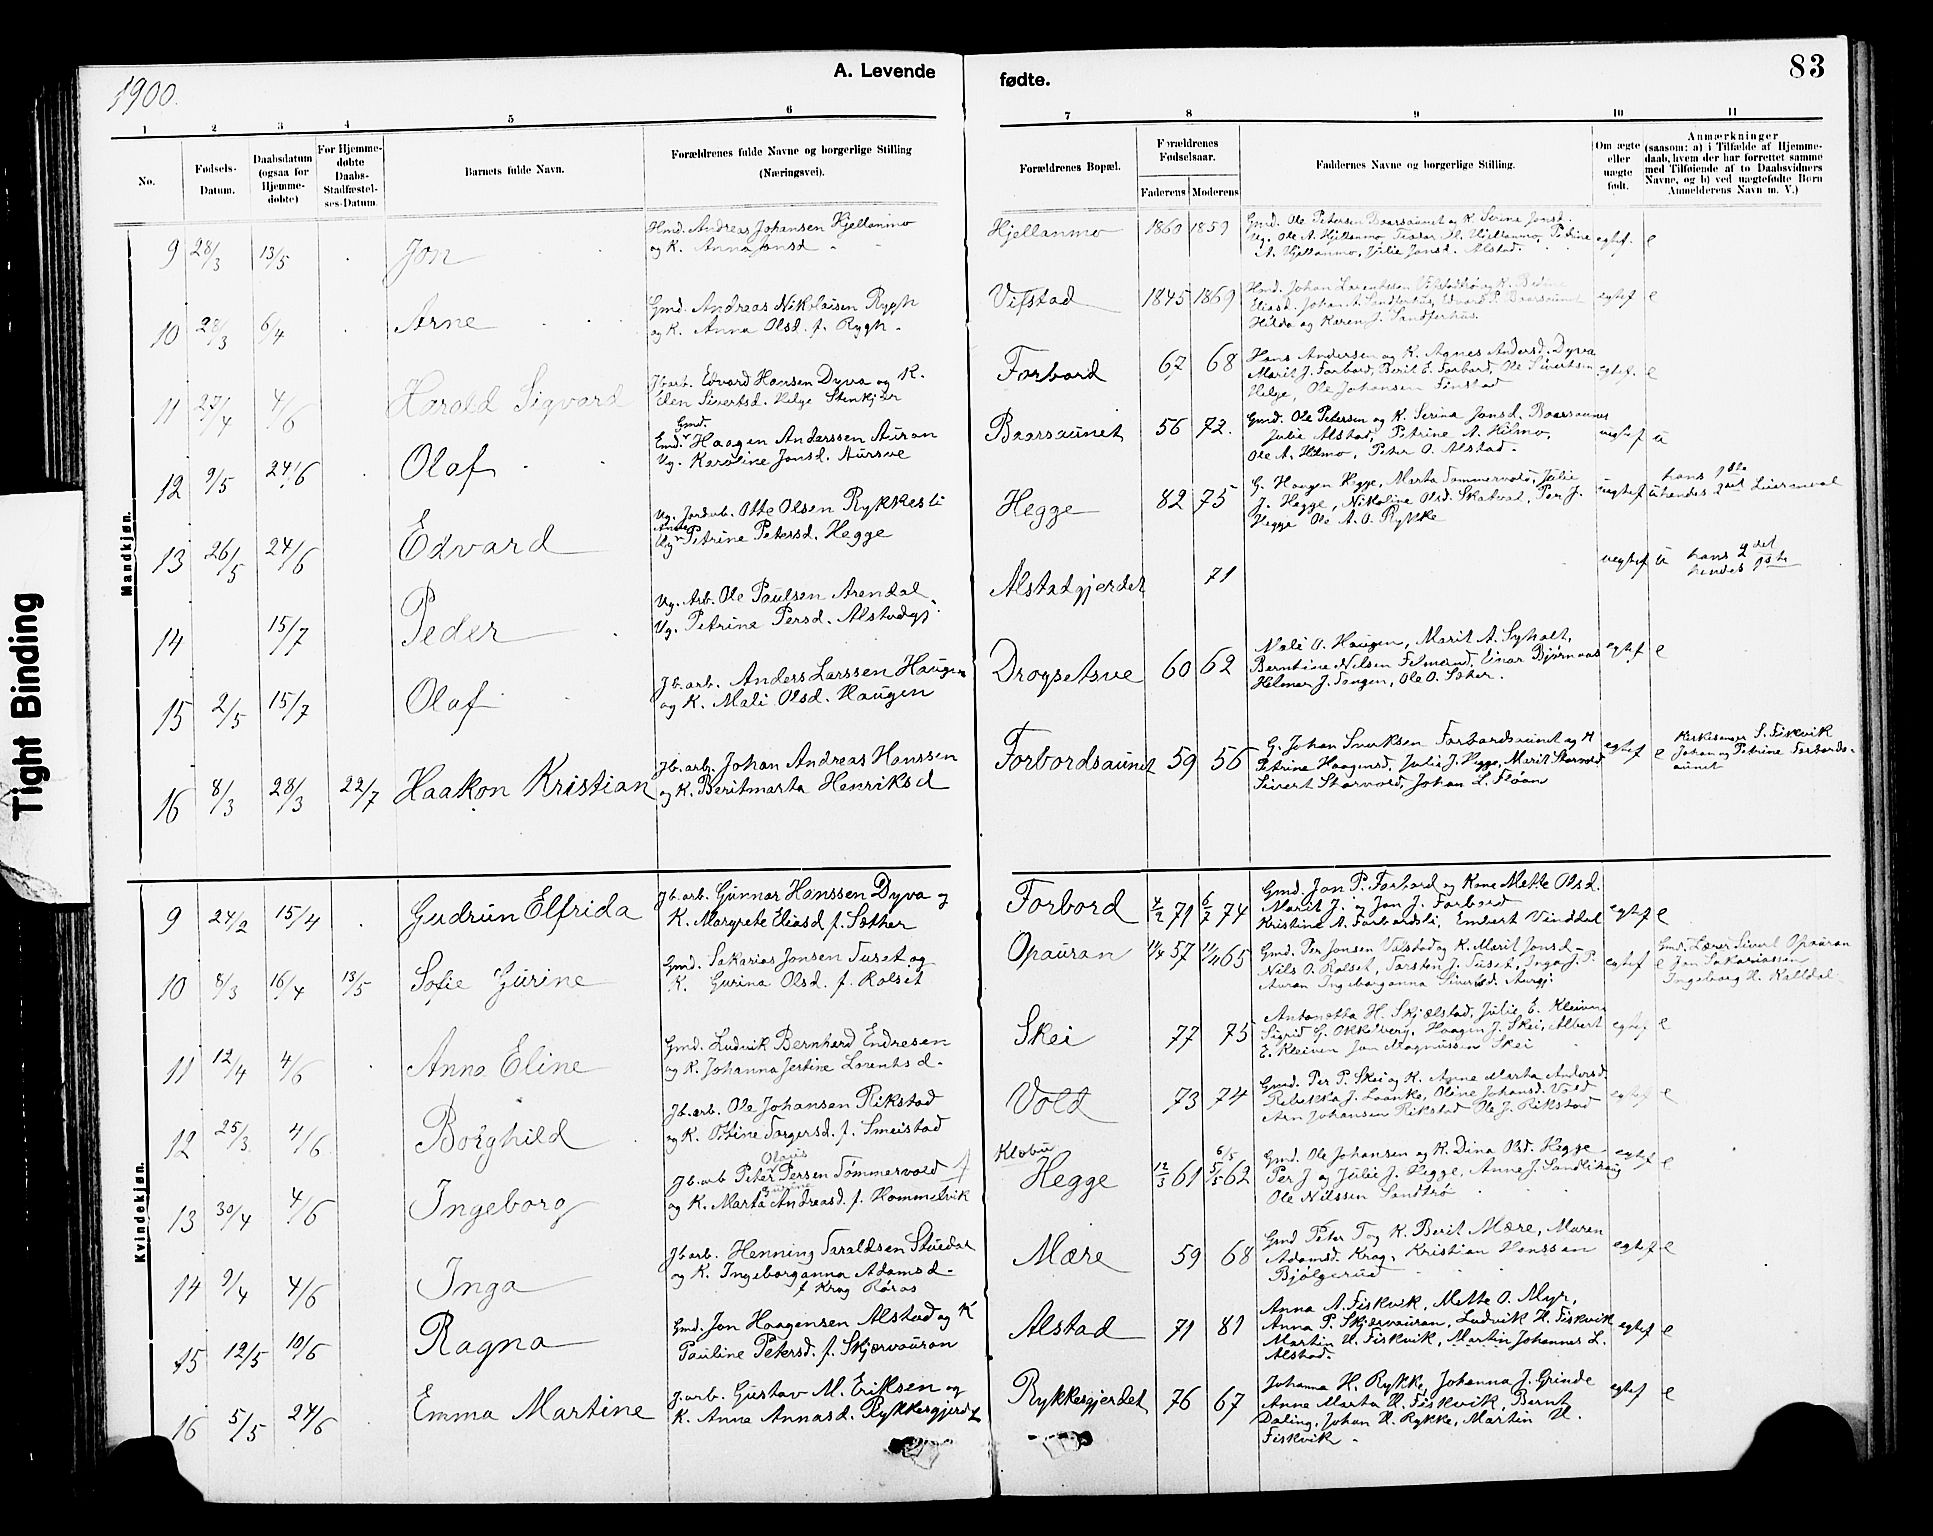 1900.
A. Levende
fødte.
83
1
2
3
4
5
6
7
8
9
10
11
No.
Fødsels-
Datum.
Daabsdatum
(ogsaa for
Hjemme-
døbte)
For Hjemme-
døbte
Daabs-
Stadfæstel-
ses-Datum.
Barnets fulde Navn.
Forældrenes fulde Navne og borgerlige Stilling
(Næringsvei).
Forældrenes Bopæl.
Forældrenes
Fødselsaar.
Faderens
Moderens
Faddernes Navne og borgerlige Stilling.
Om ægte
eller
uægte
født.
Anmærkninger
(saasom: a) i Tilfælde af Hjemme-
daab, hvem der har forrettet samme
med Tilføiende af to Daabsvidners
Navne, og b) ved uægtefødte Børn
Anmelderens Navn m. V.)
Mandkjøn.
9 28/3 13/5 Jon
Hmd. Andreas Johansen Hjellanmo
og K. Anna Jonsd.
Hjellanmo 1860 1859
Gmd. Ole Petersen Baarsaunet og K. Serina Jonsd.
Ug. Ole A. Hjellanmo, M. Hjellanmo, Petrine
A. Hjellanmo, Julie Jonsd. Alstad.
egtef. e
10 28/3 6/4 Arne
Gmd. Andreas Nikolaisen Rygh
og K. Anna Olsd. f. Rygh.
Vifstad 1845 1869
Hmd. Johan og K.
Eliasd. Johan A. Sandferhus, Edvard P. Baarsaunet
Hilda og Karen J. Sandferhus.
egtef e
11 27/4 4/6 Harald Sigvard
Jb. arb. Edvard Hansen Dyva og K.
Elen Sivertsd. Helge Stenkjær
Forbord 67 68
Hans Andersen og K. Agnes Andersd. Dyva
Marit J. Forbord, Berit E. Forbord, Ole Sivertsen
Helge, Ole Johansen Finstad
egtef. e
12 9/5 24/6 Olaf
Gmd.
Emd. Haagen Anderssen Auran
Ug. Karoline Jonsd. Aursve
Baarsaunet 56 72.
Gmd. Ole Petersen og K. Serina Jonsd. Baarsaunet
Julie Alstad, Petrine A. Hilmo,
Ole A. Hilmo, Peter O. Alstad.
uegtef u
13 26/5 24/6 Edvard
Ug. Jordb. Otte Olsen Rykkesli
Ug. Petrine Petersd. Hegge
Hegge 82 75
G. Haagen Hegge, Marta Tømmervold, Julie
J. Hegge, Nikoline Olsd. Skatval, Per J.
Hegge Ole A. O. Rykke
uegtef u
hans 1ste
hendes
14 15/7 Peder
Ug. Arb. Ole Paulsen Arendal
Ug. Petrine Persd. Alstadgj.
Alstadgjerdet 71
uegtef u
hans 2det
hendes 1ste
15 2/5 15/7 Olaf
Jb. arb. Anders Larssen Haugen
og K. Mali Olsd. Haugen
Drogsetsve 60 62
Mali O. Haugen, Marit A. Syholt,
Berntine Nilsen Einar Bjørnaas
Helmer J. Tangen, Ole O. Sæter.
egtef e
16 8/3 28/3 22/7 Haakon Kristian
Jb. arb. Johan Andreas Hanssen
og K. Beritmarta Henriksd
Forbordsaunet 59 56
G. Johan Forbordsaunet og K
Petrine Haagensd, Julie J. Hegge, Marit Starvold
Sivert Starvold, Johan L. Fløan
egtef e
Kirkesanger S. Fiskvik
Johan og Petrine Forbords-
aunet
Kvindekjøn.
9 24/2 15/4 Gudrun Elfrida
Jb. arb. Gunnar Hanssen Dyva og
K. Margrete Eliasd f. Sæther
Forbord 4/2 71 6/7 74
Gmd. Jon P. Forbord og Kone Mette Olsd.
Marit J. og Jon J. Forbord
Kristine A. Forbordsli, Embert Vindtal
egtef e
10 8/3 16/4 13/5 Sofie Gurine
Gmd. Sakarias Jonsen Tuset og
K. Gurina Olsd. f. Rolset
Opauran 11/4 57 11/11 65
Gmd. Per Jonsen og K. Marit Jonsd
Nils O. Rolset, Torsten J. Tuset, Inga J. P.
Auran Ingeborganna Sivertsd. Aurgj.
egtef e
Gmd. Lærer Sivert Opauran
Jon Sakariassen
Ingeborg H. Kalldal
11 12/4 4/6 Anna Eline
Gmd. Ludvik Bernhard Endresen
og K. Johanna Jestine Lorentsd.
Skei 77 75
Antonetta H. Skjelstad, Julie E. Kleiven
Sigrid G. Okkelberg, Haagen J. Skei, Albert
E. Kleiven Jon Magnussen Skei
egtef e
12 25/3 4/6 Borghild
Jb. arb. Ole Johansen Rikstad
og K. Ottine Torgersd. f. Smeistad
Vold 73 74
Gmd. Per P. Skei og K. Anne Marta Andersd.
Rebekka J. Laanke, Oline Johansd. Vold
Arn Johansen Rikstad Ole J. Rikstad
egtef e
13 30/4 4/6 Ingeborg
Olaus
Jb. arb Peter Persen Tømmervold
og K. Marta Andreasd. f. Hommelvik
Klæbu
Hegge 12/3 61 6/5 5/5 62
Gmd. Ole Johansen og K. Dina Olsd. Hegge
Per J og Julie J. Hegge, Anne J. Sandlihaug
Ole Nilssen Sandtrø
egtef e
14 9/4 4/6 Inga
Jb arb. Henning Taraldsen Stuedal
og K. Ingeborganna Adamsd.
f Krag Røros
Mære 59 68
Gmd Peter T og K. Berit Mære, Maren
Adamsd. Krag, Kristian Hanssen
Bjølgerud
egtef e
15 12/5 10/6 Ragna
Gmd. Jon Haagensen Alstad og K
Pauline Petersd. f. Skjervauran
Alstad 71 81
Anna A. Fiskvik, Mette O. Myr,
Anna P. Skjervauran, Ludvik H. Fiskvik
Martin H. Fiskvik, Martin Johannes L.
Alstad.
egtef e
16 5/5 24/6 Emma Martine
J. arb. Gustav M. Eriksen og
K. Anne Annasd. Rykkesgjerdet
Rykkesgjerdet 76 67
Johanna H. Rykke, Johanna J. Grinde
Anne Marta H. Fiskvik, Bernt
Daling, Johan H. Rykke, Martin H.
Fiskvik.
egtef e
Tight Binding